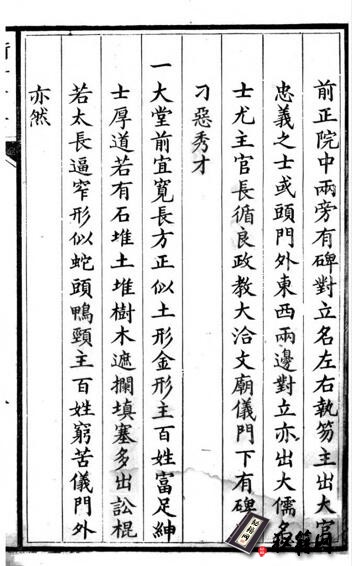 前正院中兩旁有碑對立名左右執笏主出大富
忠義之士或頭門外東西兩邊對立亦出大儒名
士尤主官長循良政教大洽文廟儀門下有碑
刁惡秀才
一大堂前宜寬長方正似土形金形主百姓富足紳
士厚道若有石堆土堆樹木遮攔填塞多出訟棍
若太長逼窄形似蛇頭鴨頸主百姓窮苦儀門外
亦然